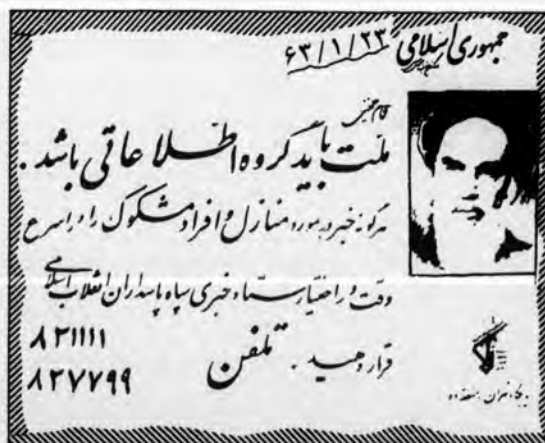 جمهوری اسلامی
۶۳/۱/۲۳
ملت باید گروه اطلاعاتی باشد .
هرگونه خبر در مورد منازل و افراد مشکوک را در اسرع
وقت در اختیار ستاد خبری سپاه پاسداران انقلاب اسلامی
قرار دهید . تلفن
۸۲۱۱۱۱
۸۲۷۷۹۹